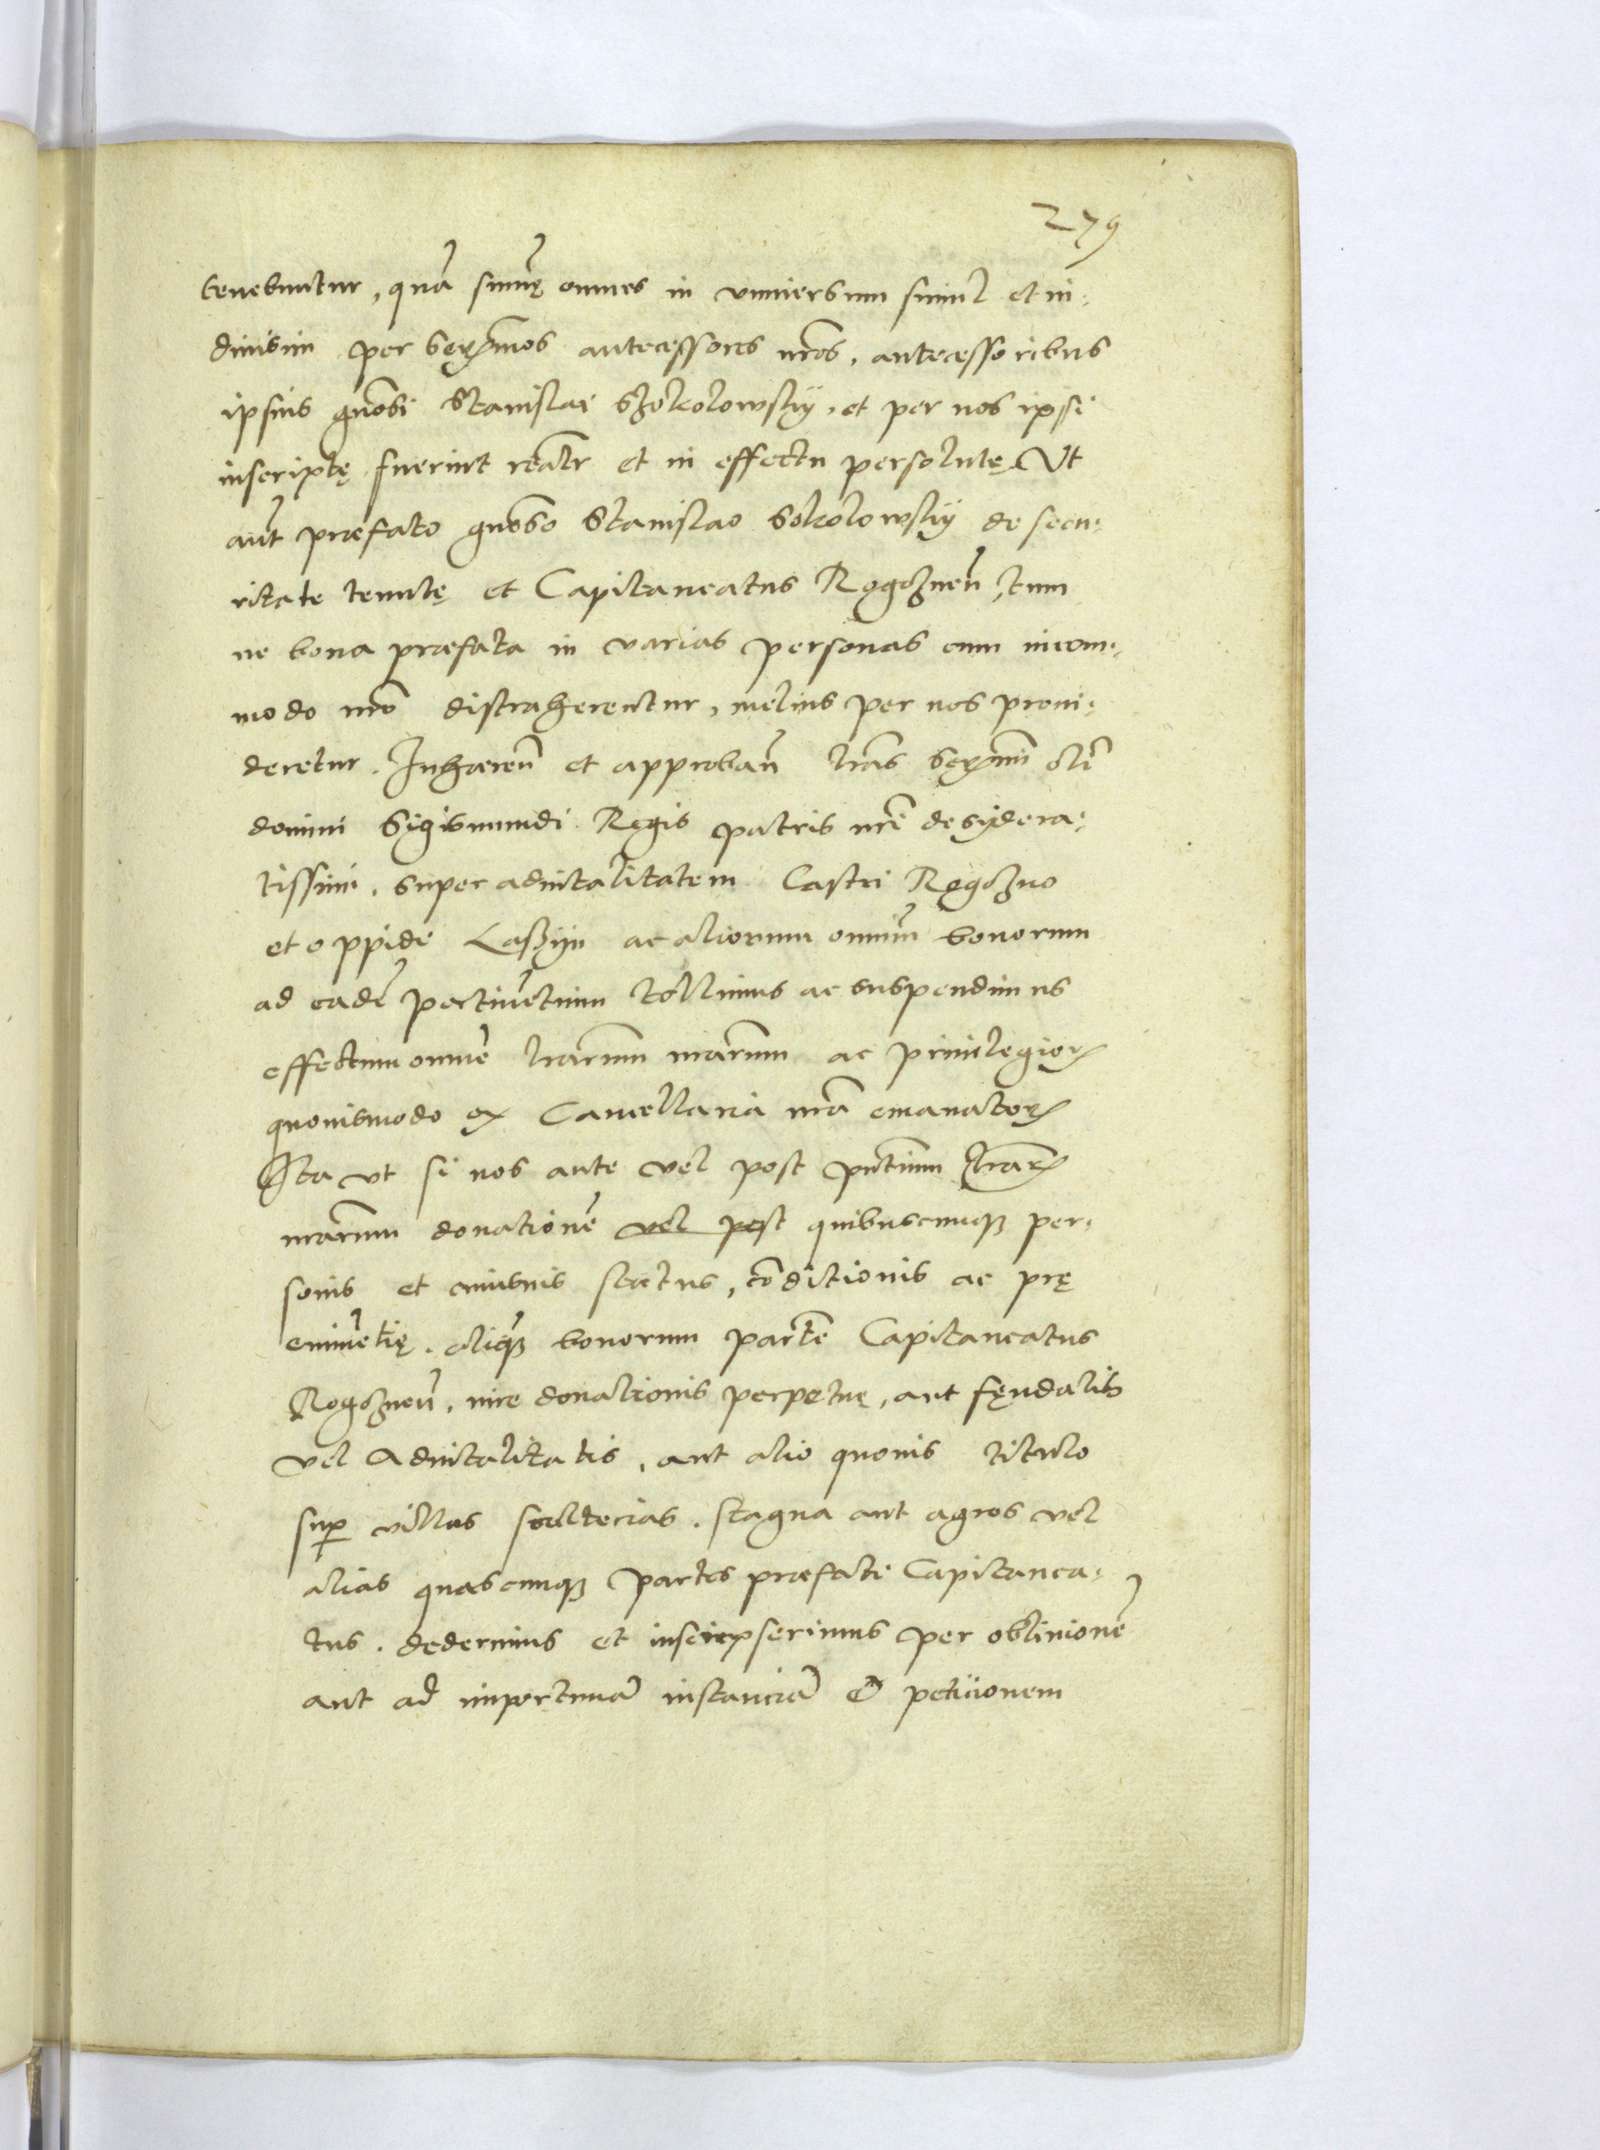 279
tenebuntur, quã sum̃ę omnes in vniversum simul et in:
diuisim per Serẽmos antecessores nr̃os, antecessoribus
ipsius gnõsi Stanislai Szokolowskij, et per nos ipsi
inscriptę fuerint reãlr et in effectu persolutę Vt
aũt præfato gnõso Stanislao Sokolowskij de secu:
ritate tenutę et Capitaneatus Rogoznen̄, tum
ne bona præfata in varias personas cum incom:
modo nr̃o distraherentur, melius per nos proui:
deretur. Inhæren̄ et approban̄ lrãs Serẽnmi olĩ
domini Sigismundi Regis patris nr̃i desydera:
tissimi, super aduitalitatem Castri Rogozno
et oppidi Laszijn ac aliorum omniũ bonorum
ad eadẽ pertinẽtium tollimus ac suspendimus
effectum omnẽ lrãrum nrãrum ac priuilegiorꝝ
quouismodo ex Cancellaria nrã emanatorꝝ
Ita vt si nos ante vel post pñtium lrãrꝝ
nrãrum donationẽ vel post quibuscunqꝫ per:
sonis et cuiusuis status, cõditionis ac prę
eminẽtię. aliquã bonorum partẽ Capitaneatus
Rogoznen̄, iure donationis perpetuę, aut fęudalis
vel Aduitalitatis, aut alio quouis titulo
suꝑ villas scultecias, stagna aut agros vel
alias quascunqꝫ partes præfati Capitanea:
tus. dederimus et inscripserimus per obliuionẽ
aut ad importunã instanciã & peticionem